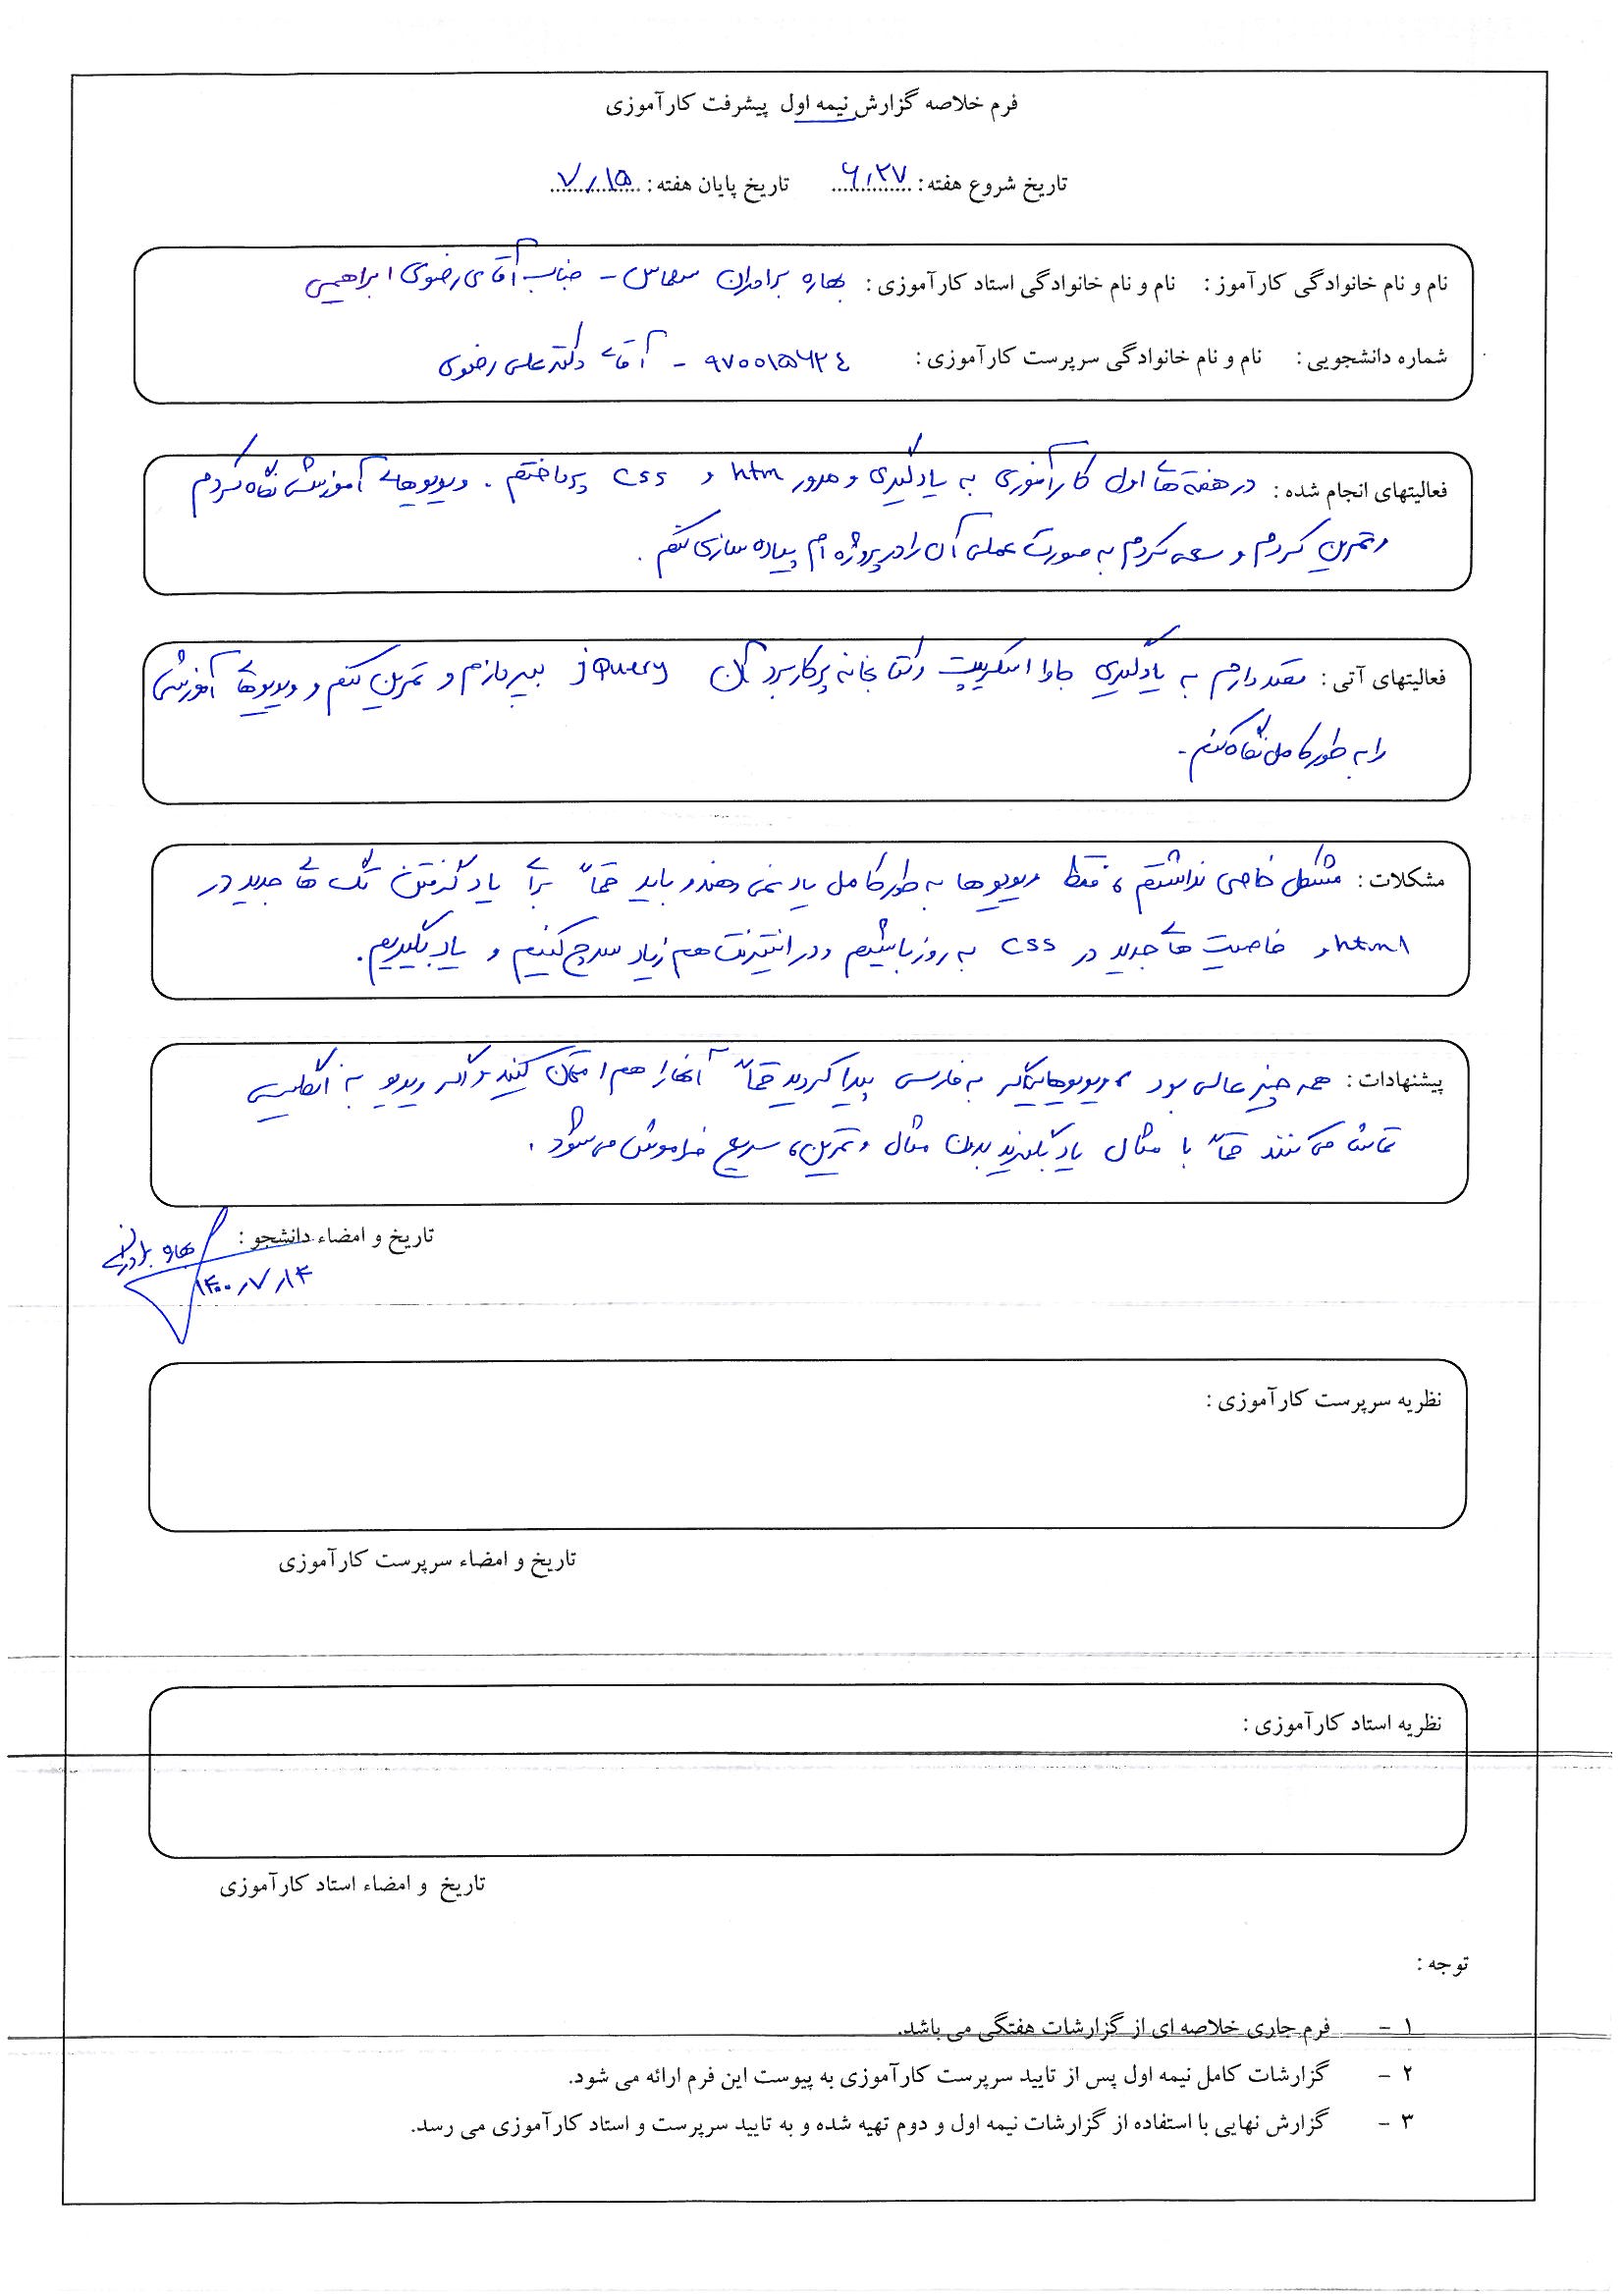 فرم خلاصه گزارش نیمه اول پیشرفت کارآموزی
تاریخ شروع هفته: ۶،۲۷ تاریخ پایان هفته: ۷،۱۵
نام و نام خانوادگی کارآموز : نام و نام خانوادگی استاد کارآموزی : بهاره برادران - جناب آقای رضوی ابراهیمی
شماره دانشجویی : نام و نام خانوادگی سرپرست کارآموزی : ۹۷۰۰۱۵۶۲۴ - آقای دکتر علی رضوی
فعالیتهای انجام شده : در هفته های اول کارآموزی به یادگیری و مرور htm و css پرداختم . ویدیوهای آموزشی نگاه کردم
و تمرین کردم و سعی کردم به صورت عملی آن را در پروژه ام پیاده سازی کنم .
فعالیتهای آتی : قصد دارم به یادگیری جاوا اسکریپت و کتابخانه پرکاربرد آن jQuery بپردازم و تمرین کنم و ویدیوهای آموزشی
را به طور کامل نگاه کنم .
مشکلات : مشکل خاصی نداشتم ، فقط ویدیوها به طور کامل یاد نمی دهند و باید حتماً برای یاد گرفتن تگ های جدید در
html و خاصیت های جدید در css به روز باشیم و در اینترنت هم زیاد سرچ کنیم و یاد بگیریم .
پیشنهادات : همه چیز عالی بود ، ویدیوهایی اگر به فارسی پیدا کردید حتماً آنها را هم امتحان کنید و اگر ویدیو به انگلیسی
تماشا می کنند حتماً با مثال یاد بگیرند بدون مثال و تمرین، سریع فراموش می شود .
تاریخ و امضاء دانشجو : بهاره برادران
۱۴۰۰،۷،۱۴
نظریه سرپرست کارآموزی :
تاریخ و امضاء سرپرست کارآموزی
نظریه استاد کارآموزی :
تاریخ و امضاء استاد کارآموزی
توجه :
۱ - فرم جاری خلاصه ای از گزارشات هفتگی می باشد.
۲ - گزارشات کامل نیمه اول پس از تایید سرپرست کارآموزی به پیوست این فرم ارائه می شود.
۳ - گزارش نهایی با استفاده از گزارشات نیمه اول و دوم تهیه شده و به تایید سرپرست و استاد کارآموزی می رسد.